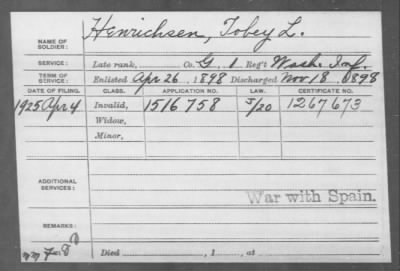 NAME OF SOLDIER: Henrichsen, Tobey L.
SERVICE: Late rank, Co. G, 1 Reg't Wash. Inf.
TERM OF SERVICE: Enlisted Apr 26, 1898 Discharged Nov 18, 1898
DATE OF FILING. CLASS. APPLICATION NO. LAW. CERTIFICATE NO.
1925 Apr 4 Invalid, 1516758 5/20 1267673
Widow,
Minor,
ADDITIONAL SERVICES:
War with Spain.
REMARKS:
Died , 1 , at